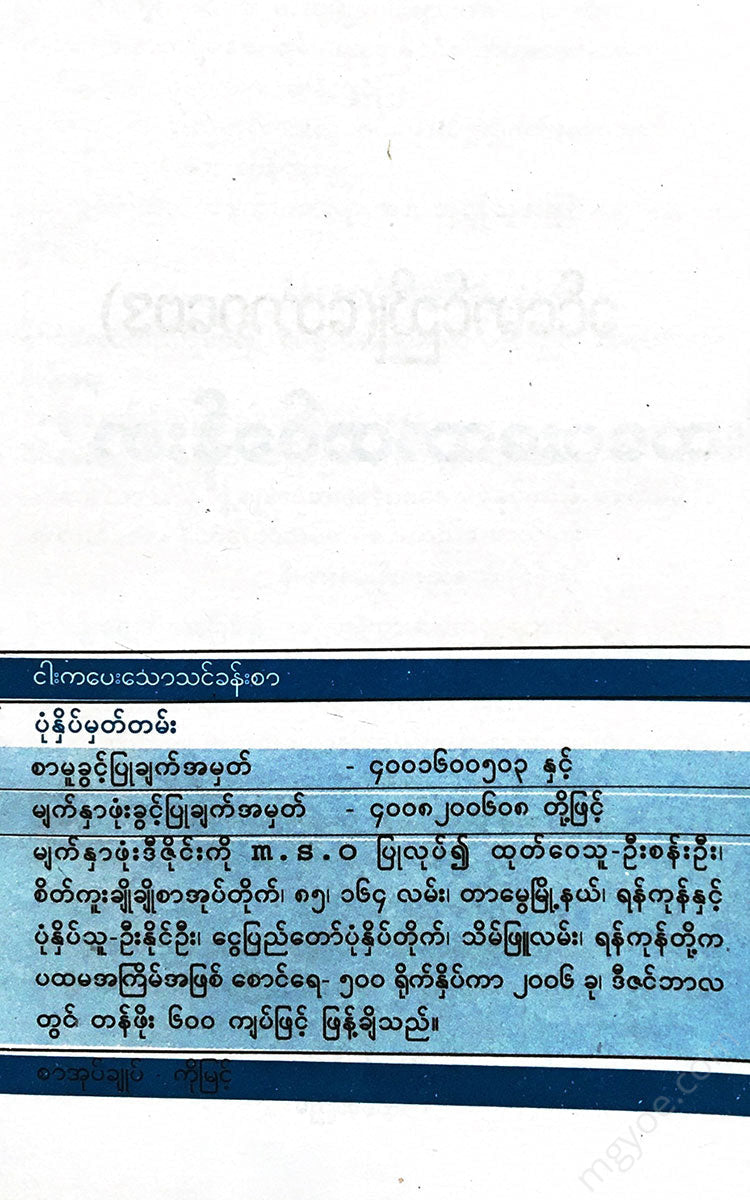 ငါးကပေးသောသင်ခန်းစာ
ပုံနှိပ်မှတ်တမ်း
စာမူခွင့်ပြုချက်အမှတ် - ၄၀၀၁၆၀၀၅၀၃ နှင့်
မျက်နှာဖုံးခွင့်ပြုချက်အမှတ် - ၄၀၀၈၂၀၀၆၀၈ တို့ဖြင့်
မျက်နှာဖုံးဒီဇိုင်းကို m.s.o ပြုလုပ်၍ ထုတ်ဝေသူ-ဦးစန်းဦး၊
စိတ်ကူးချိုချိုစာအုပ်တိုက်၊ ၈၅၊ ၁၆၄ လမ်း၊ တာမွေမြို့နယ်၊ ရန်ကုန်နှင့်
ပုံနှိပ်သူ-ဦးနိုင်ဦး၊ ငွေပြည်တော်ပုံနှိပ်တိုက်၊ သိမ်ဖြူလမ်း၊ ရန်ကုန်တို့က
ပထမအကြိမ်အဖြစ် စောင်ရေ- ၅၀၀ ရိုက်နှိပ်ကာ ၂၀၀၆ ခု၊ ဒီဇင်ဘာလ
တွင် တန်ဖိုး ၆၀၀ ကျပ်ဖြင့် ဖြန့်ချိသည်။
စာအုပ်ချုပ် - ကိုမြင့်
mgyoe.com